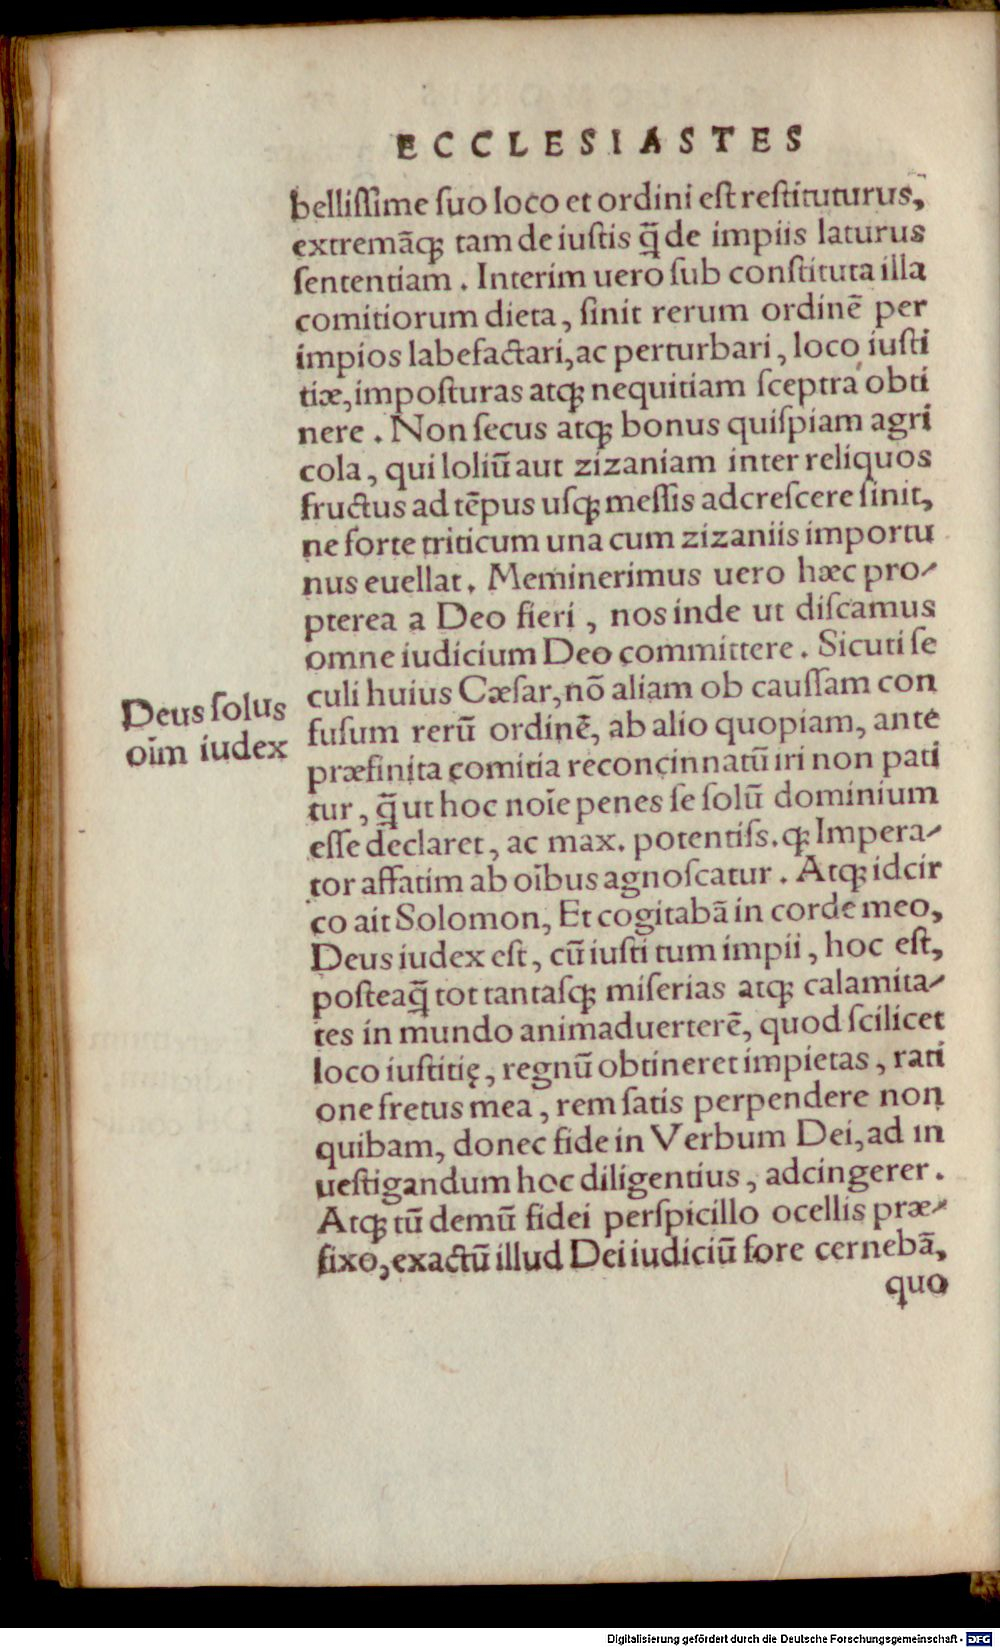 ECCLESIASTES
belliſſime ſuo loco et ordini eſt reſtituturus,
extremãq; tam de iuſtis q̃ de impiis laturus
ſententiam. Interim uero ſub conſtituta illa
comitiorum dieta, ſinit rerum ordinẽ per
impios labefactari, ac perturbari, loco iuſti
tiæ, impoſturas atq; nequitiam ſceptra obti
nere. Non ſecus atq; bonus quiſpiam agri
cola, qui loliũ aut zizaniam inter reliquos
fructus ad tẽpus uſq; meſſis adcreſcere ſinit,
ne forte triticum una cum zizaniis importu
nus euellat. Meminerimus uero hæc pro-
pterea a Deo fieri, nos inde ut diſcamus
omne iudicium Deo committere. Sicuti ſe
Deus ſolus
oĩm iudex
culi huius Cæſar, nõ aliam ob cauſſam con
fuſum rerũ ordinẽ, ab alio quopiam, ante
præfinita comitia reconcinnatũ iri non pati
tur, q̃ ut hoc noĩe penes ſe ſolũ dominium
eſſe declaret, ac max. potentiſs. q; Impera-
tor affatim ab oĩbus agnoſcatur. Atq; idcir
co ait Solomon, Et cogitabã in corde meo,
Deus iudex eſt, cũ iuſti tum impii, hoc eſt,
poſteaq̃ tot tantaſq; miſerias atq; calamita-
tes in mundo animaduerterẽ, quod ſcilicet
loco iuſtitię, regnũ obtineret impietas, rati
one fretus mea, rem ſatis perpendere non
quibam, donec fide in Verbum Dei, ad in
ueſtigandum hoc diligentius, adcingerer.
Atq; tũ demũ fidei perſpicillo ocellis præ-
fixo, exactũ illud Dei iudiciũ fore cernebã,
quo
Digitalisierung gefördert durch die Deutsche Forschungsgemeinschaft - DFG